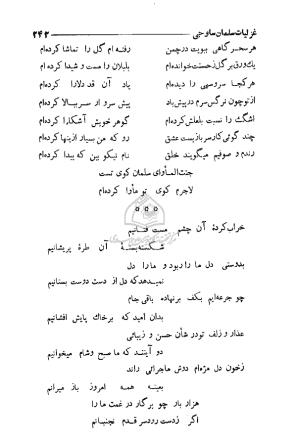 غزلیات سلمان ساوجی ۲۴۳
هر سحر گاهی ببویت در چمن رفته ام گل را تماشا کرده ام
یك ورق بر گل ز حسنت خوانده ام بلبلان را مست و شیدا کرده ام
هر کجا سروسهی را دیده ام یاد آن قد دلارا کرده ام
از تو چون نرگس سرم در پیش باد پیش سرو از سر ببالا کرده ام
اشگ را نسبت بلعلش کرده ام گوهر خویش آشکارا کرده ام
چند گوئی کار سر باز بست عشق رو که من بسیار ازینها کرده ام
رندم و صوفیم میگویند خلق نام نیکو بین که پیدا کرده ام
جنت المأوای سلمان کوی تست
لاجرم کوی تو مأوا کرده ام
***
خراب کردهٔ آن چشم مست فتانیم
شکسته بستهٔ آن طره پریشانیم
بدوستی دل ما را ربود و ما را دل
نمیدهد که دل از دست دوست بستانیم
چو جرعه ایم بکف بر نهاده باقی جام
بدان امید که بر خاك پایش افشانیم
عذار و زلف تو در شأن حسن و زیبائی
دو آیتند که ما صبح و شام میخوانیم
ز خون دل مژه ام دوش ماجرائی راند
بعینه همه امروز باز میرانم
هزار بار چو برگار در غمت ما را
اگر ز دست رود سر قدم نجنبانم